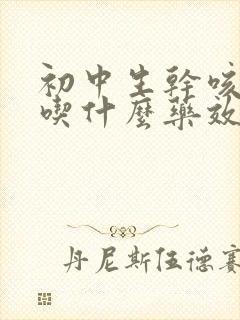 初中生幹咳
喫什麼藥效
丹尼斯伍德賽